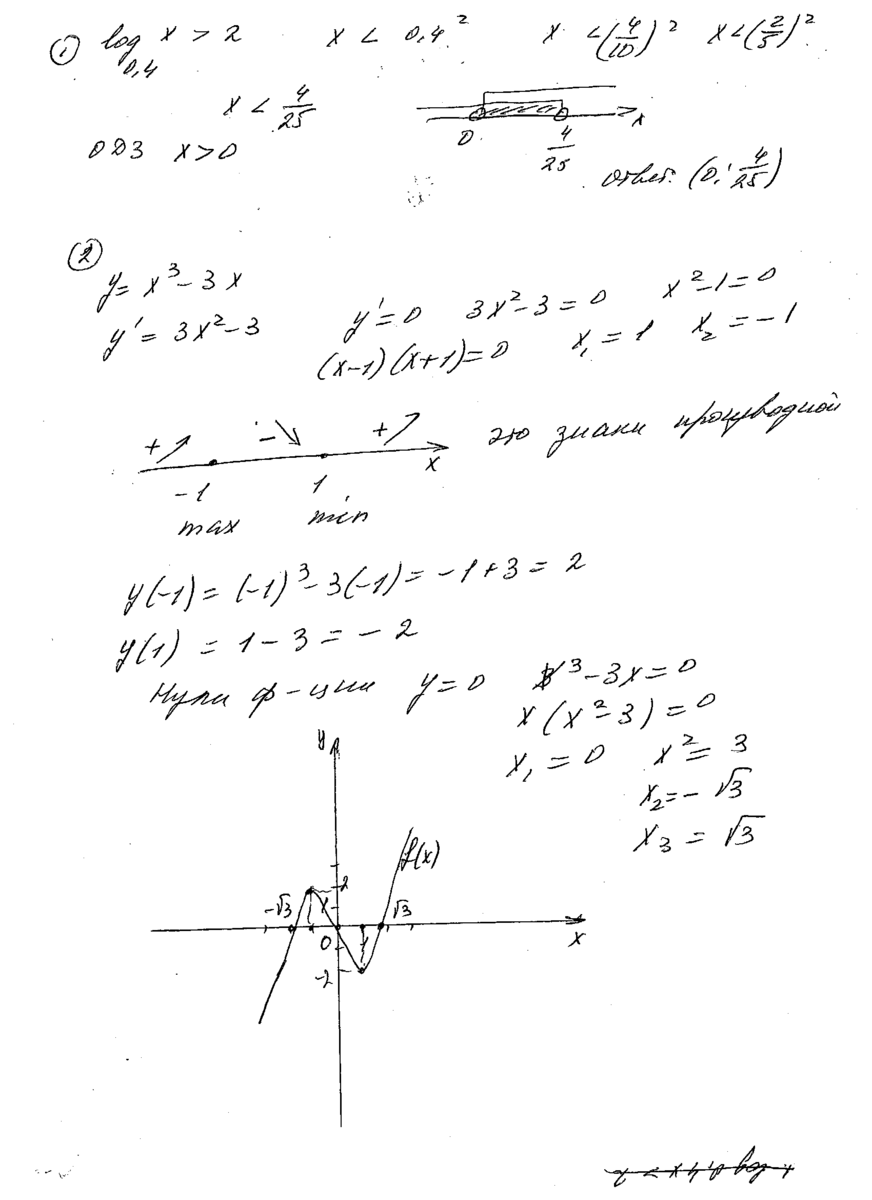 ① log₀,₄ x > 2   x < 0,4²   x < (4/10)²   x < (2/5)²
x < 4/25
ОДЗ x > 0
0   4/25   x
ответ: (0; 4/25)
②
y = x³ − 3x
y' = 3x² − 3   y' = 0   3x² − 3 = 0   x² − 1 = 0
(x−1)(x+1) = 0   x₁ = 1   x₂ = −1
+ ↗   − ↘   + ↗   x   это знаки производной
−1   1
max   min
y(−1) = (−1)³ − 3(−1) = −1 + 3 = 2
y(1) = 1 − 3 = −2
Нули ф-ции   y = 0   x³ − 3x = 0
x(x² − 3) = 0
x₁ = 0   x² = 3
x₂ = − √3
x₃ = √3
y
f(x)
2
−√3   √3
0   x
−2